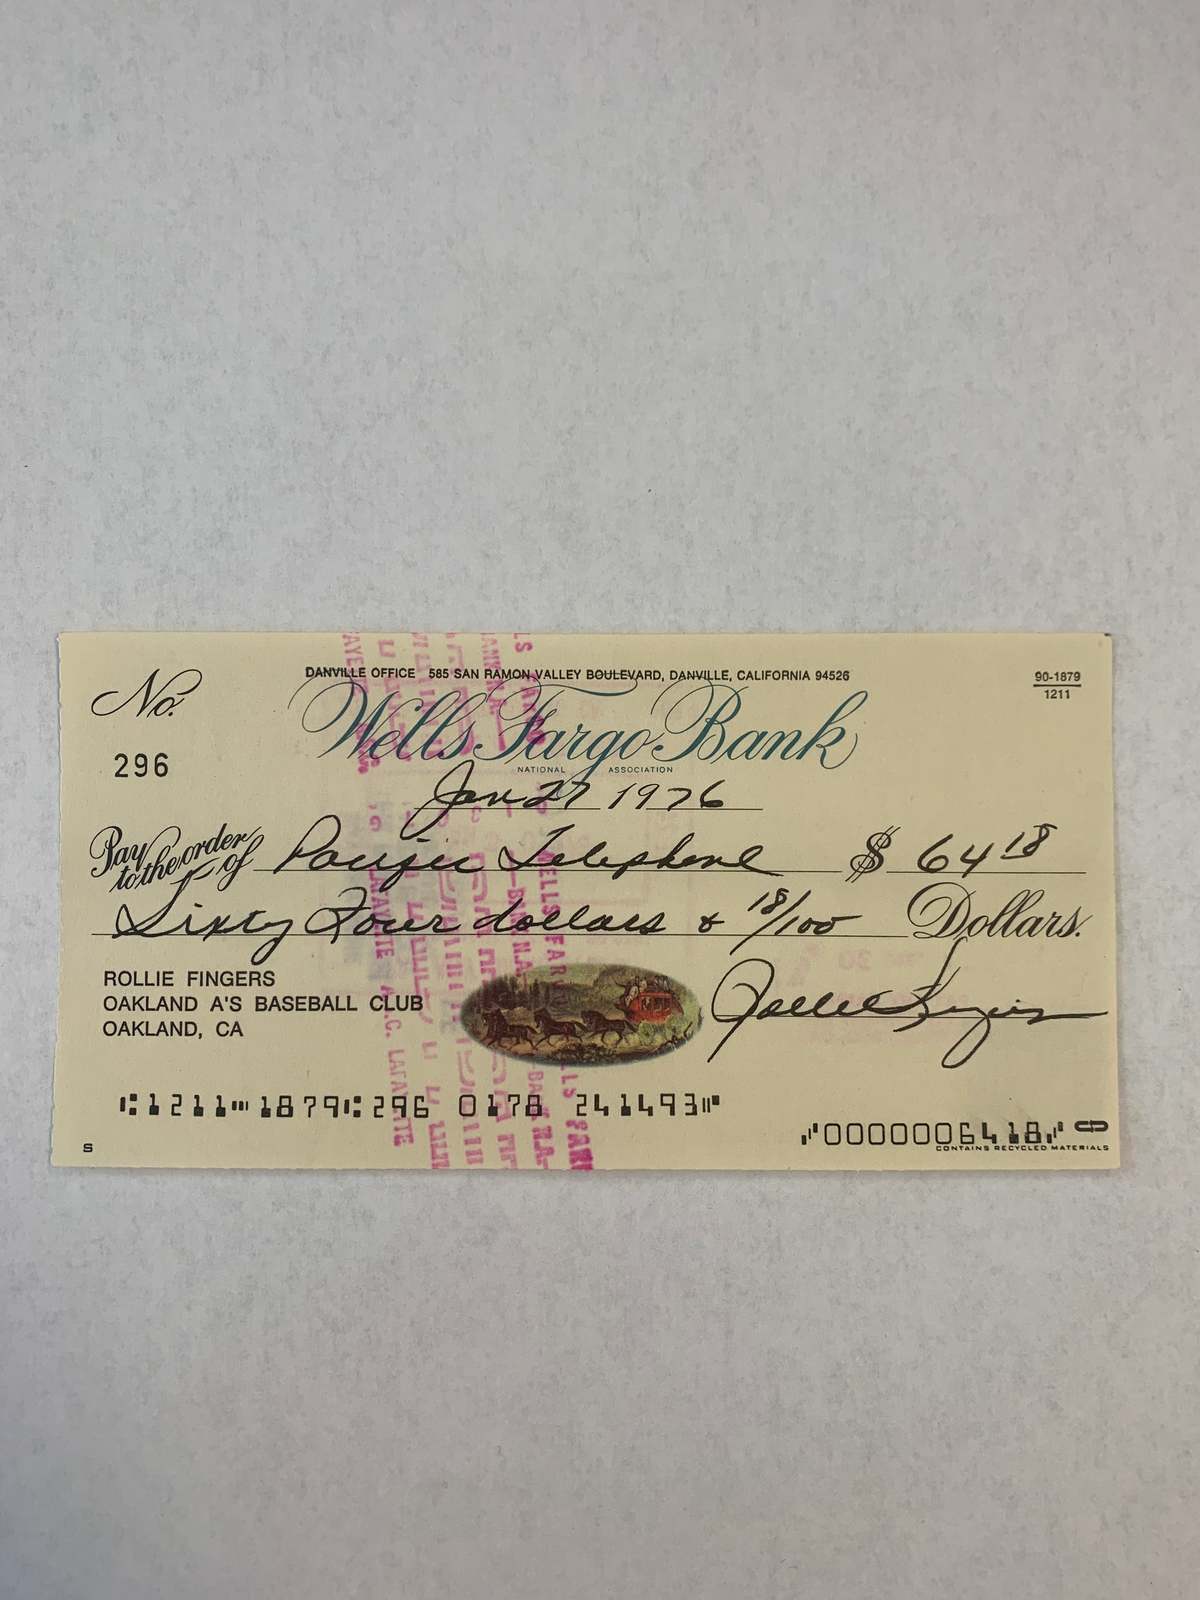 No.
DANVILLE OFFICE 585 SAN RAMON VALLEY BOULEVARD, DANVILLE, CALIFORNIA 94526
90-1879
1211
Wells Fargo Bank
NATIONAL ASSOCIATION
296
Jan 27 1976
Pay to the order of Pacific Telephone $ 64 18
Sixty Four dollars & 18/100 Dollars.
ROLLIE FINGERS
OAKLAND A'S BASEBALL CLUB
OAKLAND, CA
Rollie Fingers
⑆1211⑉1879⑆296 0178 241493⑈
⑇0000006418⑇
CONTAINS RECYCLED MATERIALS
S